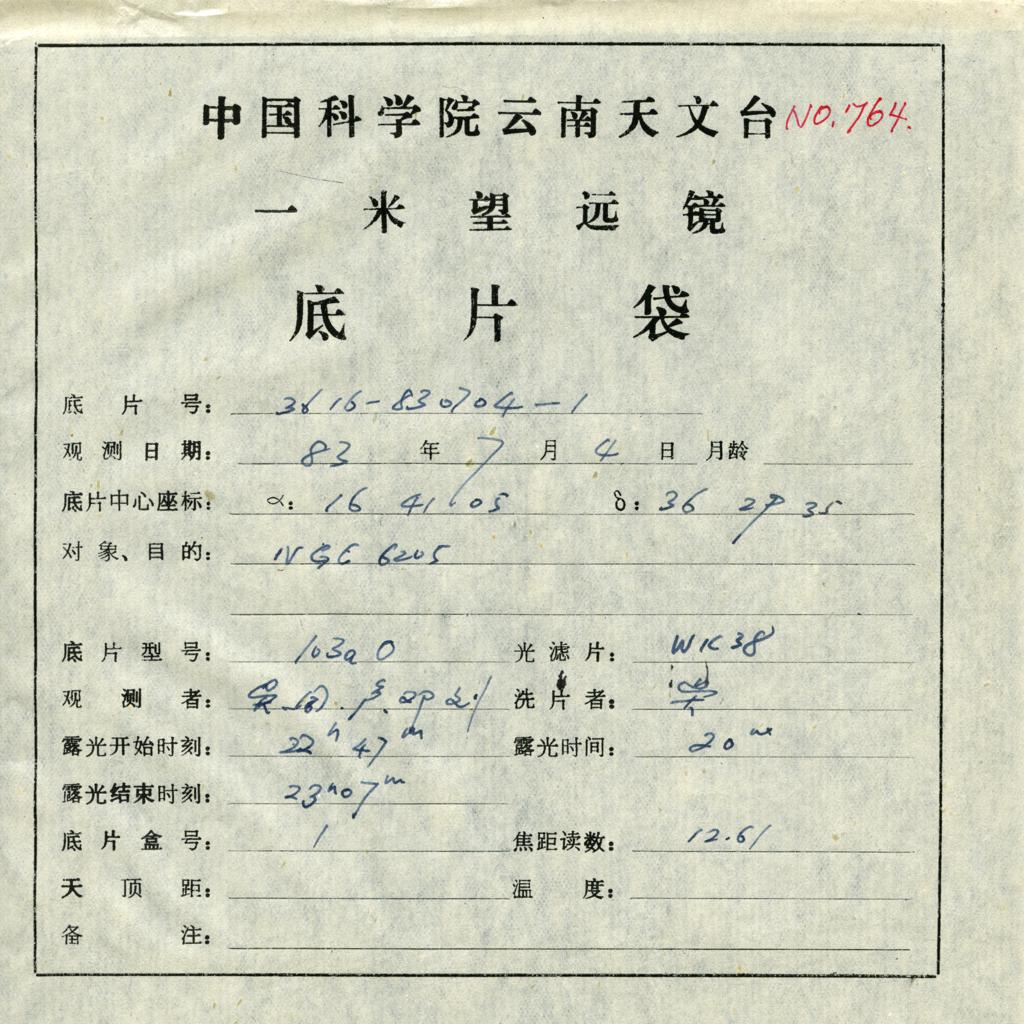 中国科学院云南天文台 NO.764.
一米望远镜
底片袋
底片号: 3616-830704-1
观测日期: 83 年 7 月 4 日 月龄
底片中心座标: α: 16 41 05 δ: 36 29 35
对象、目的: NGC 6205
底片型号: 103a O 光滤片: WK38
观测者: 洗片者:
露光开始时刻: 22h 47m 露光时间: 20m
露光结束时刻: 23h07m
底片盒号: 1 焦距读数: 12.61
天顶距: 温度:
备注: